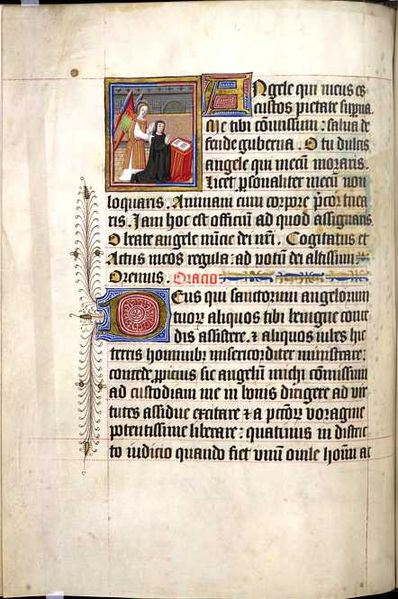 Angele qui meus es
custos pietate supna.
Me tibi cõmissum: salua de
fende guberna. O tu dulcis
angele qui mecũ moraris.
Licet psonaliter mecũ non
loquaris. Animam cum corpore pcor tuea
ris. Jam hoc est officiũ ad quod assignaris
O beate angele nũcie dei nri. Cogitatus et
Actus meos regula: ad votũ dei altissimi
Oremus. Oracio
Deus qui sanctorum angelorum
tuor aliquos tibi benigne conce
dis assistere. & aliquos iubes hic
terris hominibus misericorditer ministrare:
concede ppicius sic angelũ michi cõmissum
ad custodiam me in bonis dirigere ad vir
tutes assidue excitare & a pctor voragine
potentissime liberare: quatinus in distric
to iudicio quando fiet vnũ ouile hoim ac